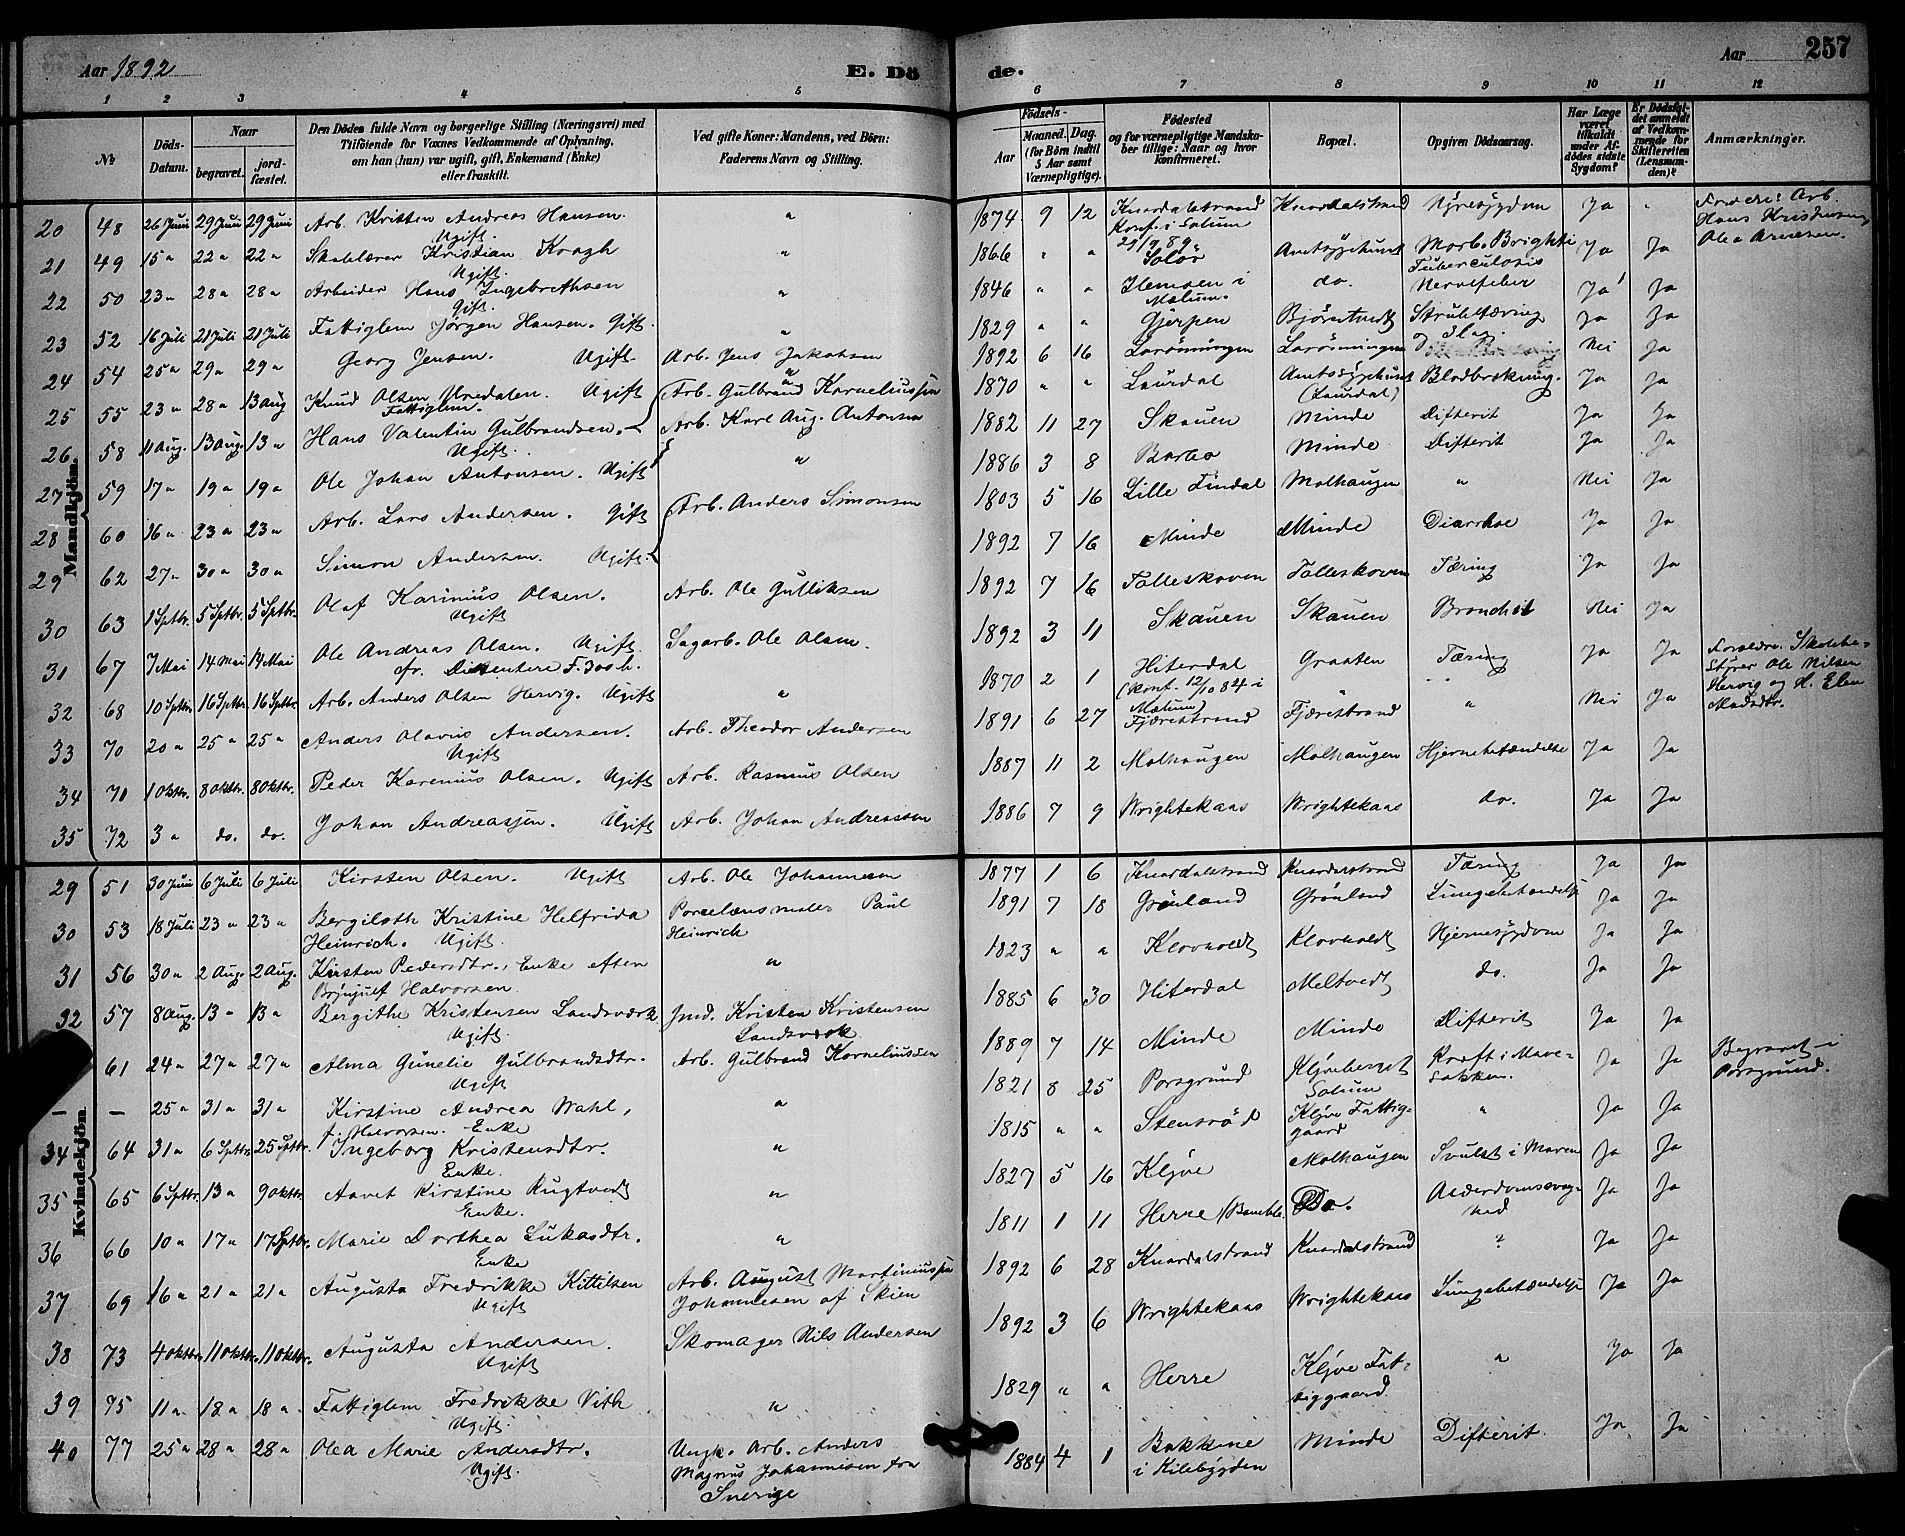 Aar 1892
E. Dö
de.
Aar
257
1 2 3 4 5 6 7 8 9 10 11 12
№
Döds-Datum.
Naar
begravet.
jord-fæstet.
Den Dödes fulde Navn og borgerlige Stilling (Næringsvei) med
Tilföiende for Voxnes Vedkommende af Oplysning,
om han (hun) var ugift, gift, Enkemand (Enke)
eller fraskilt.
Ved gifte Koner: Mandens, ved Börn:
Faderens Navn og Stilling.
Födsels-
Aar
Maaned. Dag.
(for Börn indtil
5 Aar samt
Værnepligtige).
Födested
og for værnepligtige Mandska-
ber tillige: Naar og hvor
konfirmeret.
Bopæl.
Opgiven Dödsaarsag.
Har Læge
været
tilkaldt
under Af-
dödes sidste
Sygdom?
Er Dödsfal-
det anmeldt
af Vedkom-
mende for
Skifteretten
(Lensman-
den)?
Anmærkninger.
Mandkjön.
20 48 26 Juni 29 Juni 29 Juni Arb. Kristen Andreas Hansen. Ugift. " 1874 9 12 Knardalstrand Konf. i Solum Knardalstrand Nyresygdom Ja " Forældre: Arb. Hans Kristensen, Olea Arnesen.
21 49 15 " 22 " 22 " Skolelærer Kristian Kragh Ugift. " 1866 " " Solör Amtssygehuset Morb. Brighti Tuberculosis Ja Ja
22 50 23 " 28 " 28 " Arbeider Hans Ingebrethsen Gift. " 1846 " " Hemsen i Mælum. do. Nervefeber Ja Ja
23 52 16 Juli 21 Juli 21 Juli Fattiglem Jørgen Hansen. Gift. " 1829 " " Gjerpen Bjørntvedt Strubetæring Ja Ja
24 54 25 " 29 " 29 " Georg Jensen. Ugift. Arb. Jens Jakobsen 1892 6 16 Larönningen Larönningen Nei Ja
25 55 23 " 28 " 13 Aug Knud Olsen Vredalen. Ugift Fattiglem. " 1870 " " Laurdal Amtssygehuset (Laurdal) Blodbrækning. Ja Ja
26 58 11 Aug. 13 Aug. 13 " Hans Valentin Gulbrandsen. Ugift. Arb. Gulbrand Korneliussen 1882 11 27 Skauen Minde Difterit Ja Ja
27 59 17 " 19 " 19 " Ole Johan Antonsen. Ugift Arb. Karl Aug. Antonsen 1886 3 8 Barbo Minde Difterit Ja Ja
28 60 16 " 23 " 23 " Arb. Lars Andersen. Gift " 1803 5 16 Lille Findal Molhaugen " Nei Ja
29 62 27 " 30 " 30 " Simon Andersen. Ugift. Arb. Anders Simonsen 1892 7 16 Minde Minde Diarrhoe Ja Ja
30 63 1 Sptbr. 5 Sptbr. 5 Sptbr. Olaf Karinius Olsen. Ugift Arb. Ole Gulliksen 1892 7 16 Falleskoven Falleskoven Tæring Ja Ja
31 67 7 Mai 14 Mai 14 Mai Ole Andreas Olsen. Ugift Sagarb. Ole Olsen. 1892 3 11 Skauen Skauen Bronchit Nei Ja
32 68 10 Sptbr. 16 Sptbr. 16 Sptbr. Arb. Anders Olsen Hervig. Ugift " 1870 2 1 Hiterdal (Konf. 12/10 84 i Mælum) Graaten Tæring Ja Ja Forældre: Skolebe-styrer Ole Nilsen Hervig og H. Elen Madsdtr.
33 70 20 " 25 " 25 " Anders Olavus Andersen. Ugift Arb. Theodor Andersen 1891 6 27 Fjærestrand Fjærestrand " Nei Ja
34 71 1 Oktbr. 8 Oktbr. 8 Oktbr. Peder Karenius Olsen. Ugift Arb. Rasmus Olsen 1887 11 2 Molhaugen Molhaugen Hjernebetændelse Ja Ja
35 72 3 " do. do. Johan Andreassen. Ugift Arb. Johan Andreassen 1886 7 9 Wrightekaas Wrightekaas do. Ja Ja
Kvindekjön.
29 51 30 Juni 6 Juli 6 Juli Kirsten Olsen. Ugift Arb. Ole Johannesen 1877 1 6 Knardalstrand Knardalstrand Tæring Ja Ja
30 53 18 Juli 23 " 23 " Bergiloth Kristine Helfrida Heinrich. Ugift. Porcelænsmaler Paul Heinrich 1891 7 18 Grönland Grönland Lungebetændelse Ja Ja
31 56 30 " 2 Aug. 2 Aug. Kirsten Pedersdtr., Enke efter Brynjulf Halvorsen. " 1823 " " Klovholdt Klovholdt Hjernesygdom Ja Ja
32 57 8 Aug. 13 " 13 " Bergithe Kristensen Landsværk Ugift. Jnd. Kristen Kristensen Landsværk 1885 6 30 Hiterdal Meltvedt do. Ja Ja
61 24 " 27 " 27 " Alma Gunelie Gulbrandsdtr. Ugift Arb. Gulbrand Korneliussen 1889 7 14 Minde Minde Difterit Ja Ja
— — 25 " 31 " 31 " Kirstine Andrea Wahl, f. Halvorsen. Enke " 1821 8 25 Porsgrund Klyveberget Solum Kræft i Mave-sækken. Ja Ja Begravet i Porsgrund.
34 64 31 " 6 Sptbr. 25 Sptbr. Ingeborg Kristensdtr. Enke. " 1815 " " Stensröd Klyve Fattig-gaard " Ja Ja
35 65 6 Sptbr. 13 " 9 Oktbr. Aavet Kirstine Rugtvedt Enke. " 1827 5 16 Klyve Molhaugen Svulst i Maven Ja Ja
36 66 10 " 17 " 17 Sptbr. Marie Dorthea Lukasdtr. Enke " 1811 1 11 Herre (Bamble. Do. Alderdomssvag-hed Ja Ja
37 69 16 " 21 " 21 " Augusta Fredrikke Kittilsen Ugift Arb. August Martiniussen Johannesen af Skien 1892 6 28 Knardalstrand Knardalstrand ? Ja Ja
38 73 4 Oktbr. 11 Oktbr. 11 Oktbr. Augusta Andersen. Ugift Skomager Nils Andersen 1892 3 6 Wrightekaas Wrightekaas Lungebetændelse Ja Ja
39 75 11 " 18 " 18 " Fattiglem Fredrikke Vith Ugift. " 1829 " " Herre Klyve Fat-tiggaard. " Ja Ja
40 77 25 " 28 " 28 " Olea Marie Andersdtr. Ugift. Ungk. Arb. Anders Magnus Johannisen fra Sverige 1884 4 1 Bakkene i Kilebygden Minde Difterit. Ja Ja